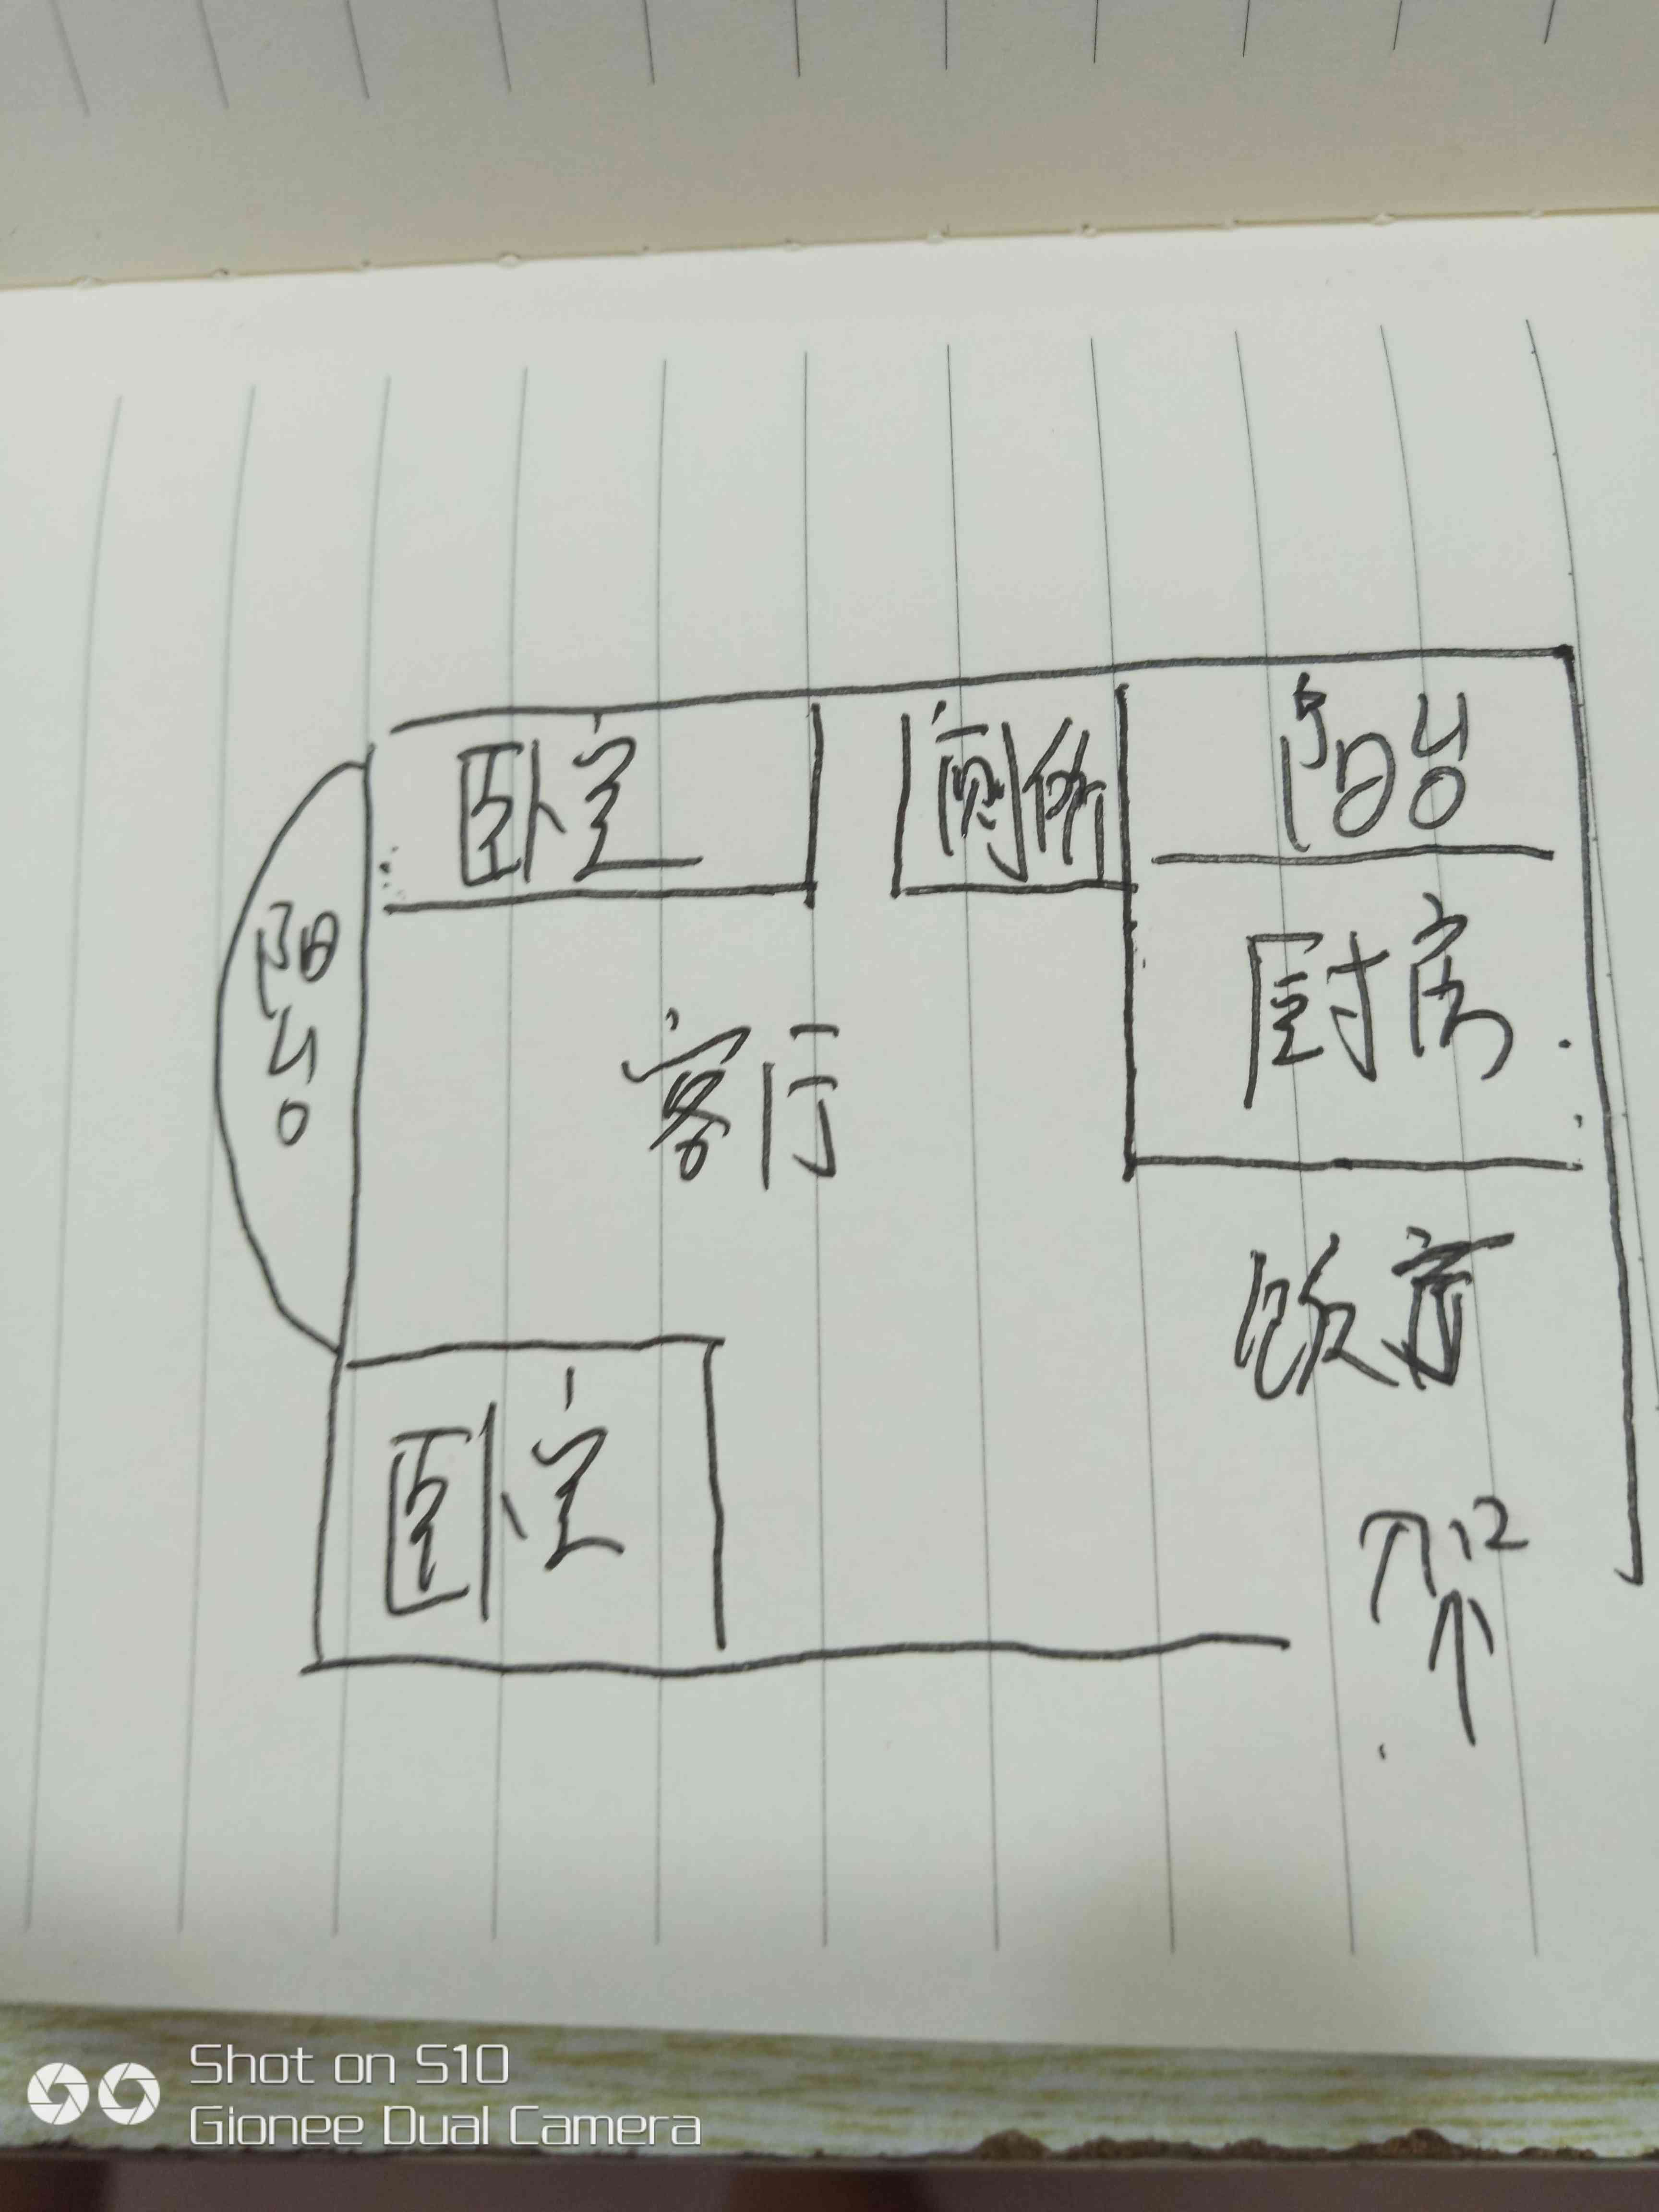 卧室
厕所
阳台
阳台
厨房
客厅
饭厅
卧室
入口
Shot on S10
Gionee Dual Camera